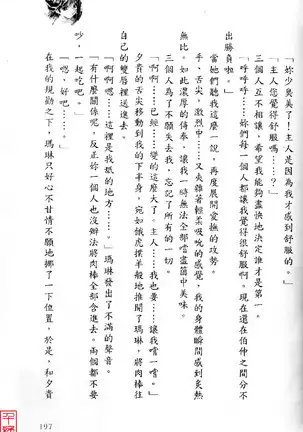 「妳少臭美了！主人是因為我才感到舒服的。」
「主人您覺得舒服嗎……？」
三個人互不相讓，希望我能夠盡快地決定誰才是第一。
「呼呼……妳們每一個人都讓我覺得很舒服啊。現在還在伯仲之間分不
出勝負啦。」
當她們聽我這麼一說，再度展開愛撫的攻勢。
手、舌尖，激烈中……又夾雜著輕柔吸吮的感覺，我的身體瞬間感到炙熱
無比。如此濃厚的侍奉，讓我一時無法全部嚐盡箇中美味。
三個人為了不願失去我，忘記了所有的一切。
「啊啊……已經……變的這麼大了，主人……我也要……讓我嚐一嚐。」
夕貴的舌尖移動到我的下半身，宛如餓虎撲羊般地推開了瑪琳，將肉棒往
自己的雙唇裡送進去。
「啊啊！嗯……這裡是我舐的地方……。」瑪琳發出了不滿的聲音。
「有什麼關係呢，反正妳一個人也沒辦法將肉棒全部含進去。兩個都不要
吵，一起吃吧。」
「嗯、好吧……。」
在我的規勸之下，瑪琳只好心不甘情不願地挪了一下位置。於是，和夕貴
197